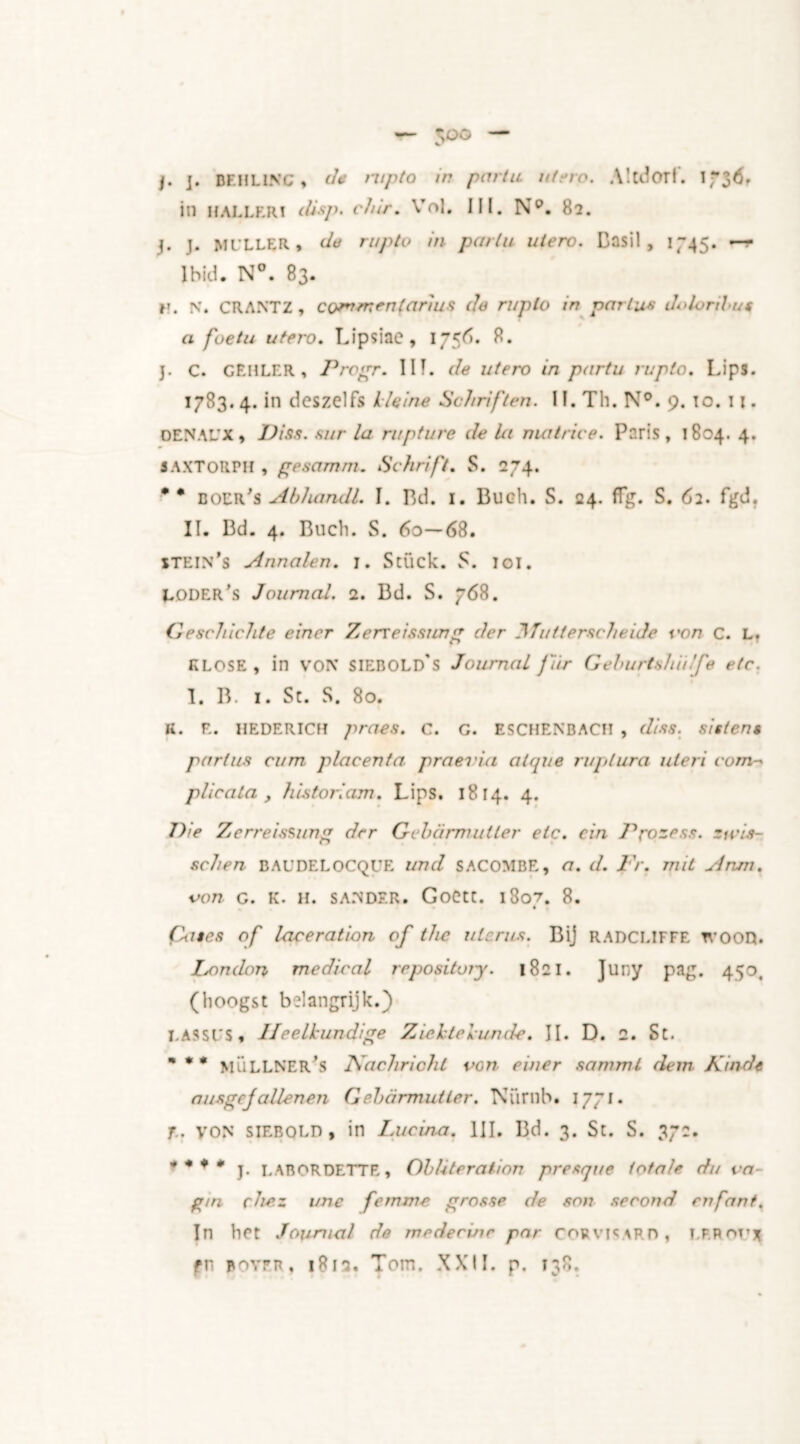 — 300 —
J. J. BEHLING, de rupto in partu utero. Altdorf. 1736,
in HALLERI disp. chir. Vol. III. N°. 82.
J. J. MULLER, de rupto in partu utero. Basil, 1745. —
Ibid. N°. 83.
N. CRANTZ, commentarius de rupto in partus doloribus
a foetu utero. Lipsiae, 1756. 8.
J. C. GEHLER, Progr. III. de utero in partu rupto. Lips.
1783. 4. in deszelfs kleine Schriften. II. Th. N°. 9. 10. 11.
DENAUX, Diss. sur la rupture de la matrice. Paris, 1804. 4.
SAXTORPH, gesamm. Schrift. S. 274.
** BOER'S Abhandl. I. Bd. 1. Buch. S. 24. ffg. S. 62. fgd.
II. Bd. 4. Buch. S. 60—68.
STEIN'S Annalen. 1. Stück. S. 101.
LODER'S Journal. 2. Bd. S. 768.
Geschichte einer Zerreissung der Mutterscheide von C. L.
KLOSE, in VON SIEBOLD'S Journal für Geburtshülfe etc.
I. B. 1. St. S. 80.
K. F. HEDERICH praes. C. G. ESCHENBACH, diss. sistens
partus cum placenta praevia atque ruptura uteri com-
plicata, historiam. Lips. 1814. 4.
Die Zerreissung der Gebärmutter etc. ein Prozess. zwis-
schen BAUDELOCQUE und SACOMBE, a. d. Fr. mit Anm.
von G. K. H. SANDER. Goett. 1807. 8.
Cases of laceration of the uterus. Bij RADCLIFFE WOOD.
London medical repository. 1821. Juny pag. 450.
(hoogst belangrijk.)
LASSUS, Heelkundige Ziektekunde. II. D. 2. St.
*** MÜLLNER'S Nachricht von einer sammt dem Kinde
ausgefallenen Gebärmutter. Nürnb. 1771.
E. VON SIEBOLD, in Lucina. III. Bd. 3. St. S. 372.
**** J. LABORDETTE, Obliteration presque totale du va-
gin chez une femme grosse de son second enfant.
In het Journal de medecine par CORVISARD, LEROUX
en BOYER, 1812. Tom. XXII. p. 138.